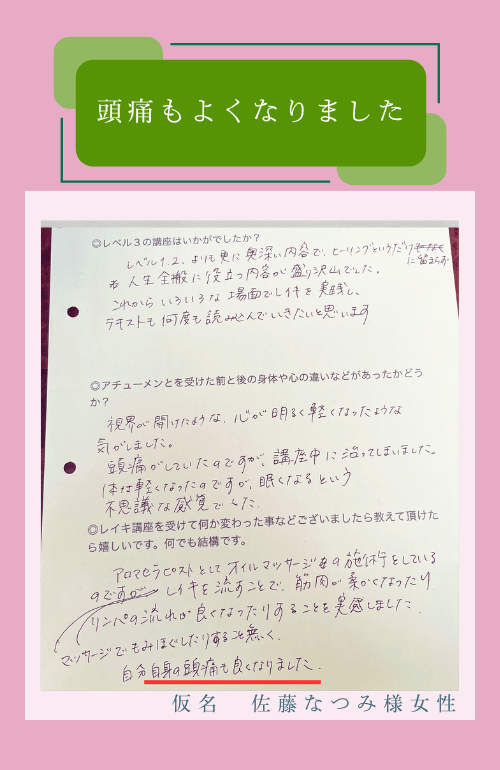 頭痛もよくなりました
◎レベル3の講座はいかがでしたか？
レベル1.2.よりも更に奥深い内容で、ヒーリングというだけ
に留まらず
人生全般に役立つ内容が盛り沢山でした。
これからいろいろな場面でレイキを実践し、
テキストも何度も読み込んでいきたいと思います
◎アチューメンとを受けた前と後の身体や心の違いなどがあったかどう
か？
視界が開けたような、心が明るく軽くなったような
気がしました。
頭痛がしていたのですが、講座中に治ってしまいました。
体は軽くなったのですが、眠くなるという
不思議な感覚でした。
◎レイキ講座を受けて何か変わった事などございましたら教えて頂けた
ら嬉しいです。何でも結構です。
アロマセラピストとしてオイルマッサージの施術をしている
のですが レイキを流すことで、筋肉が柔かくなったり
リンパの流れが良くなったりすることを実感しました。
マッサージでもみほぐしたりすること無く、
自分自身の頭痛も良くなりました。
仮名　佐藤なつみ様女性